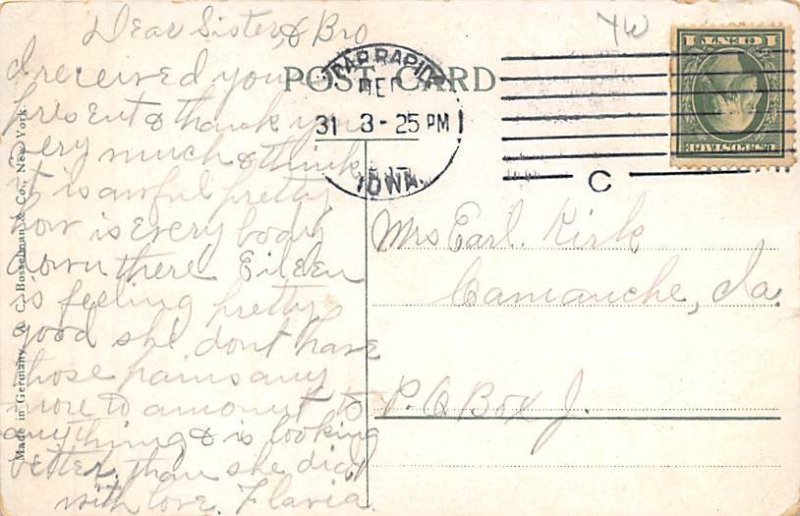 Dear Sister & Bro
I received your
present & thank you
very much & think
it is awful pretty
how is every body
down there Eileen
is feeling pretty
good she dont have
those pains any
more to amount to
anything & is looking
better than she did
with love. Flavia.
POST CARD
RAPIDS
DEC
31 3-25 PM
IOWA.
C
YW
Mrs Earl. Kirk
Camanche, Ia.
P.O Box J.
Made in Germany. A. C. Bosselman & Co., New York.
U.S. POSTAGE
1 CENT 1